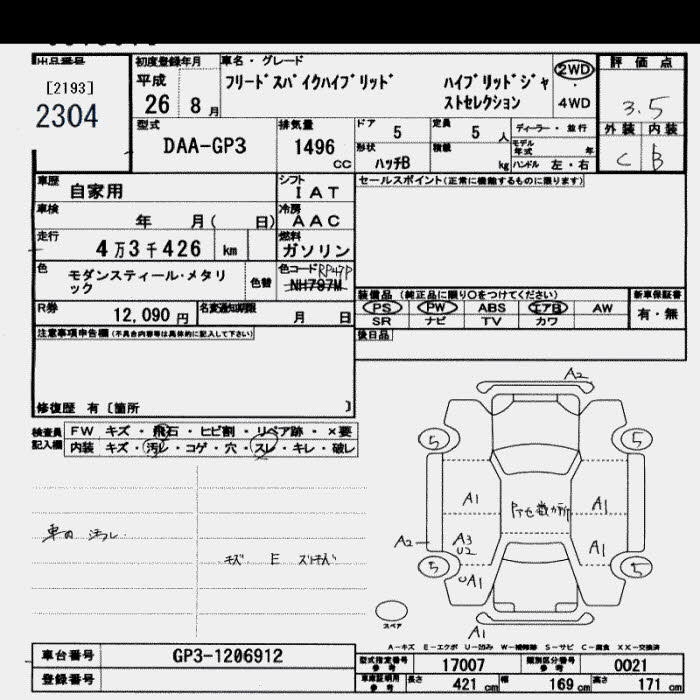 出品番号
[2193]
2304
初度登録年月
平成
26 8 月
車名・グレード
フリードスパイクハイブリッド ハイブリッドジャ
ストセレクション
2WD
・
4WD
評価点
3.5
外装 内装
C B
型式
DAA-GP3
排気量
1496
CC
ドア
5
定員
5 人
ディーラー・並行
モデル
年式 年
形状
ハッチB
積載
kg
ハンドル 左・右
車歴
自家用
シフト
IAT
セールスポイント(正常に機能するものに限ります)
車検
年 月( 日)
冷房
AAC
走行
4万3千426 km
燃料
ガソリン
色
モダンスティール・メタリ
ック
色替
色コード RP47P
NH797M
装備品 (純正品に限り○をつけてください)
新車保証書
PS PW ABS エアB AW
SR ナビ TV カワ
有・無
R券
12,090 円
名変通知期限
月 日
後日品
注意事項申告欄(不具合内容等は具体的に記入して下さい)
修復歴 有〔箇所 〕
検査員
記入欄
FW キズ・飛石・ヒビ割・リペア跡・×要
内装 キズ・汚レ・コゲ・穴・スレ・キレ・破レ
車内 汚レ
キズ E
A2
5 5
A1 A1
A2 A3
U2
A1
5 5
UA1
A1
スペア
A-キズ E-エクボ U-凹み W-補修跡 S-サビ C-腐食 XX-交換済
車台番号
GP3-1206912
登録番号
型式指定番号
参考
17007
類別区分番号
参考
0021
車検証明用
参考
長さ 421 cm 幅 169 cm 高さ 171 cm